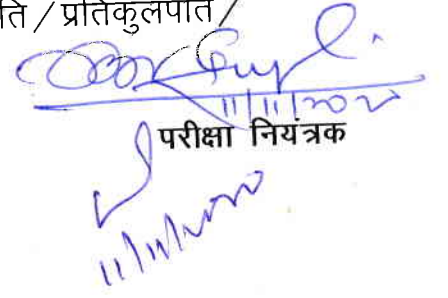 ति / प्रतिकुलपति /
11/11/2020
परीक्षा नियंत्रक
11/11/2020